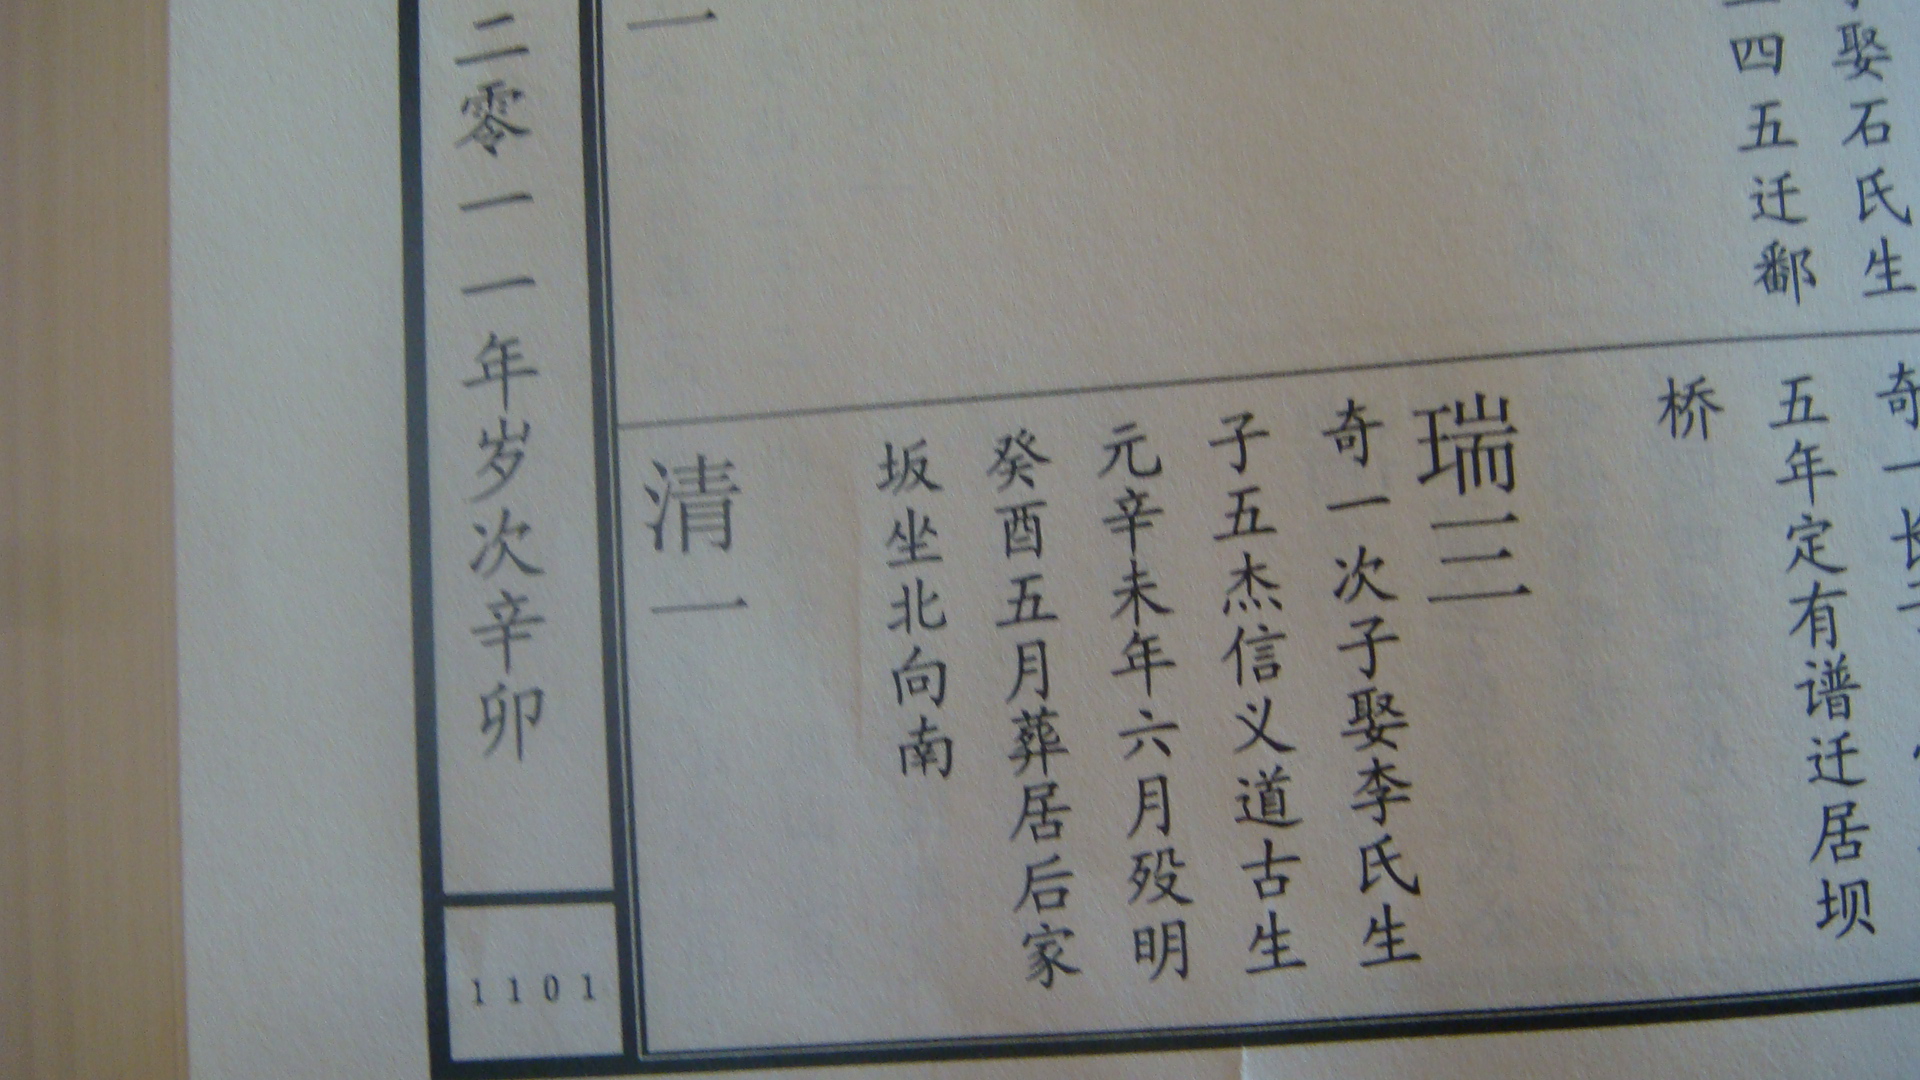 娶石氏生
四五迁鄱
奇一长
五年定有谱迁居坝
桥
瑞三
奇一次子娶李氏生
子五杰信义道古生
元辛未年六月殁明
癸酉五月葬居后家
坂坐北向南
一
清一
二零一一年岁次辛卯
1101